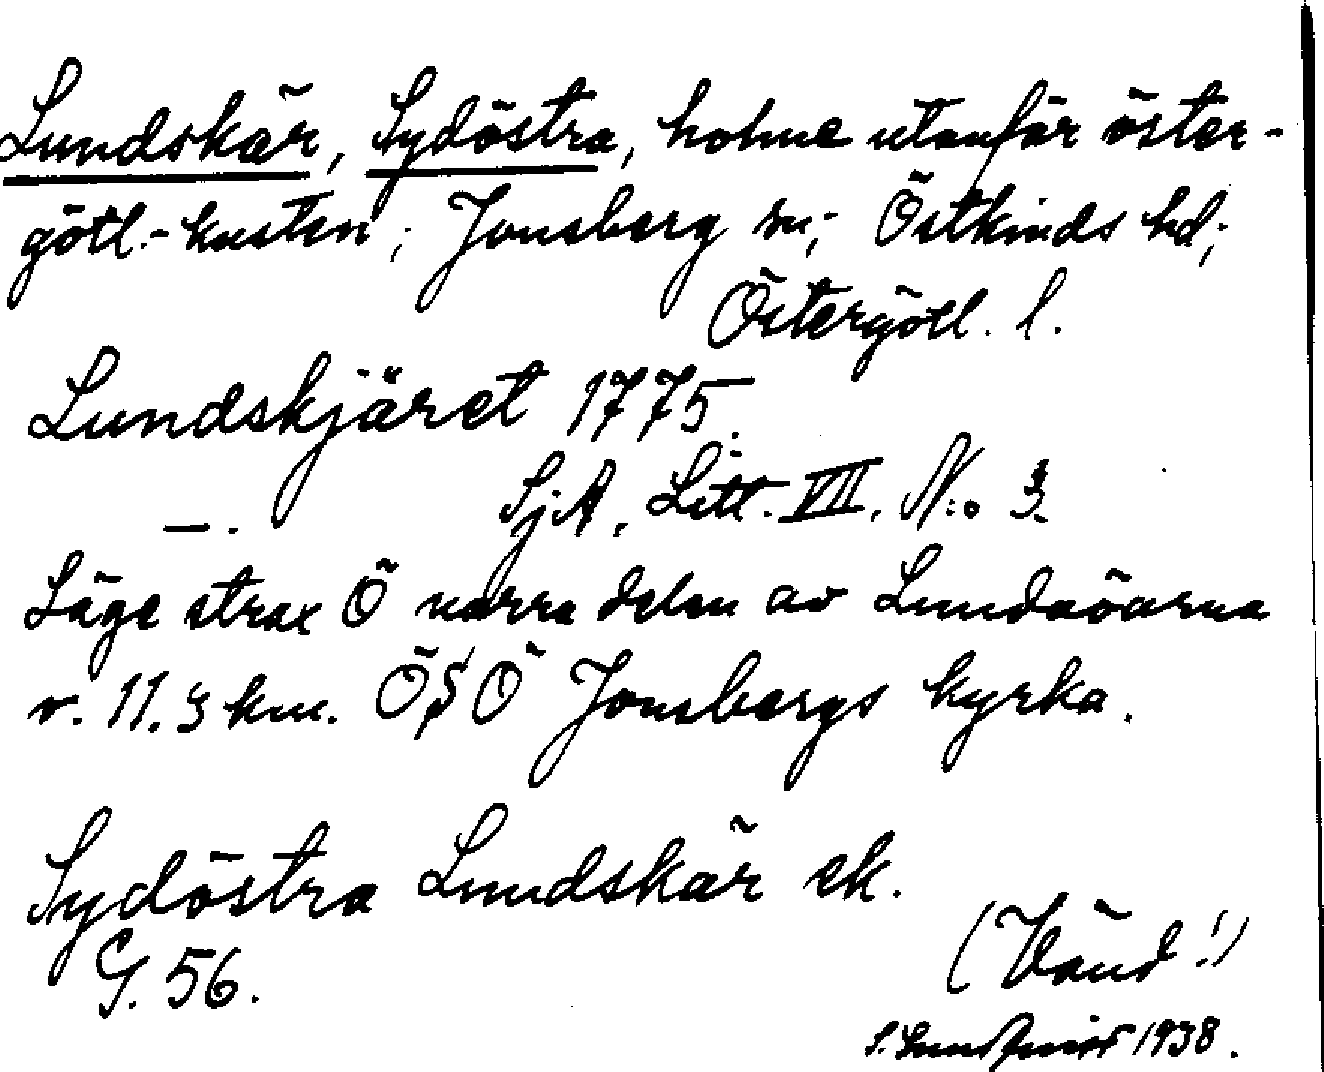 Lundskär, Sydöstra, holme utanför öster-
götl.-kusten; Jonsberg sn; Östkinds hd;
Östergötl. l.
Lundskjäret 1775.
—. SjA, Litt. VII. N:o 3.
Läge strax Ö norra delen av Lundaöarna
v. 11.3 km. ÖSÖ Jonsbergs kyrka.
Sydöstra Lundskär ek.
G. 56.
(Vänd!)
S. 1938.